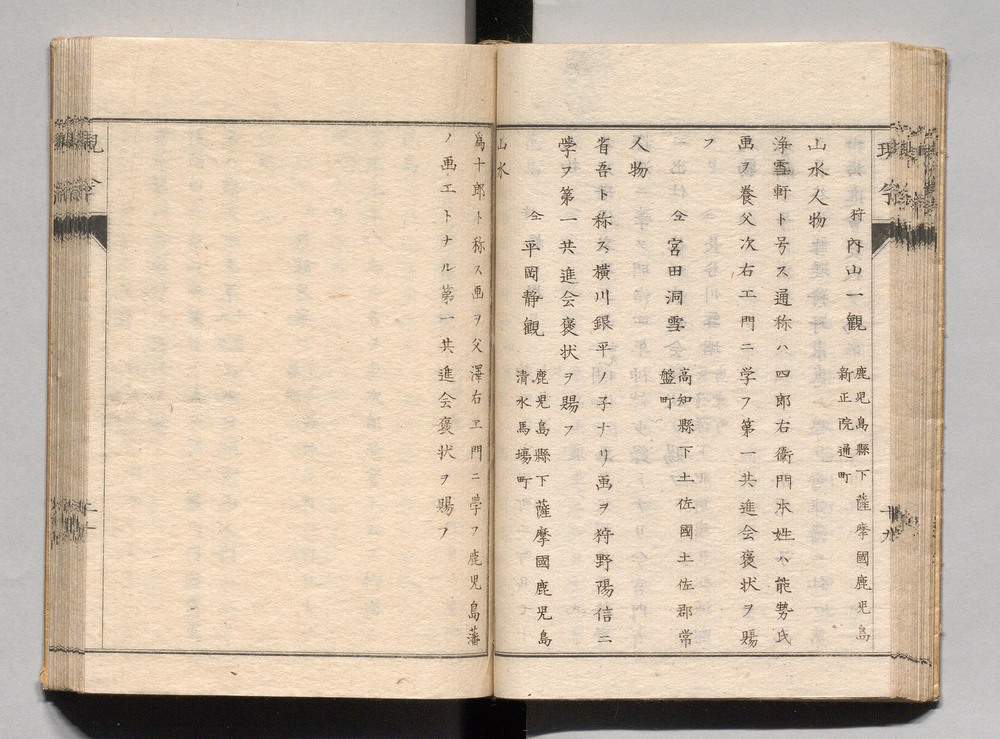 狩 内山一観 鹿児島縣下薩摩國鹿児島
新正院通町
山水人物
浄雪軒ト号ス通称ハ四郎右衛門本姓ハ能勢氏
画ヲ養父次右エ門ニ学フ第一共進会褒状ヲ賜
フ
仝 宮田洞雪 高知縣下土佐國土佐郡常
盤町
人物
省吾ト称ス横川銀平ノ子ナリ画ヲ狩野陽信ニ
学フ第一共進会褒状ヲ賜フ
仝 平岡静観 鹿児島縣下薩摩國鹿児島
清水馬場町
山水
為十郎ト称ス画ヲ父澤右エ門ニ学フ鹿児島藩
ノ画工トナル第一共進会褒状ヲ賜フ
十九
二十